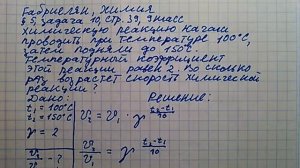 Габриелян, Химия
§ 5, задача 10, стр. 39, 9 класс
Химическую реакцию начали
проводить при температуре 100°С,
затем подняли до 150°С.
Температурный коэффициент
этой реакции равен 2. Во сколько
раз возрастет скорость химической
реакции?
Дано: Решение:
t₁ = 100°С
t₂ = 150°С
γ = 2
v₂ = v₁ · γ^((t₂-t₁)/10)
v₂/v₁ - ?
v₂/v₁ = γ^((t₂-t₁)/10)